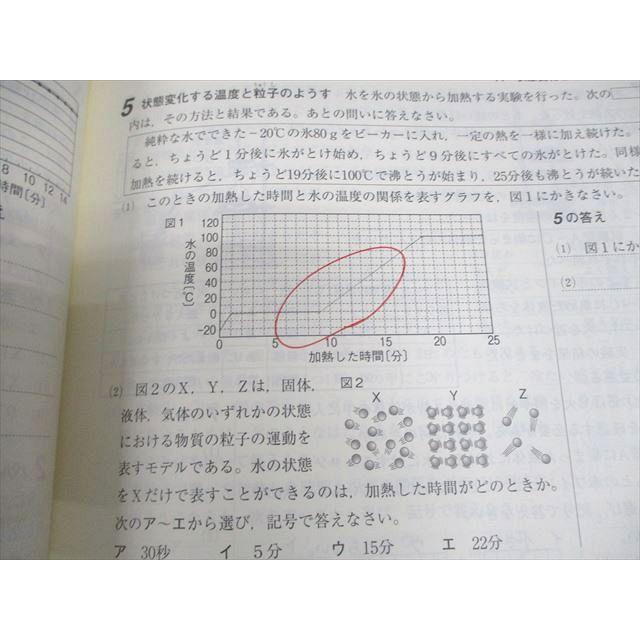 5 状態変化する温度と粒子のようす 水を氷の状態から加熱する実験を行った。次の
内は，その方法と結果である。あとの問いに答えなさい。
純粋な水でできた－20℃の氷80gをビーカーに入れ，一定の熱を一様に加え続けた。
ると，ちょうど1分後に氷がとけ始め，ちょうど9分後にすべての氷がとけた。同様
加熱を続けると，ちょうど19分後に100℃で沸とうが始まり，25分後も沸とうが続いた
(1) このときの加熱した時間と水の温度の関係を表すグラフを，図1にかきなさい。
8 10 12 14
時間〔分〕
図1
水の温度〔℃〕
120
100
80
60
40
20
0
－20
0 5 10 15 20 25
加熱した時間〔分〕
5の答え
(1) 図1にか
(2)
(2) 図2のX，Y，Zは，固体，
液体，気体のいずれかの状態
における物質の粒子の運動を
表すモデルである。水の状態
をXだけで表すことができるのは，加熱した時間がどのときか。
次のア～エから選び，記号で答えなさい。
図2
X Y Z
ア 30秒 イ 5分 ウ 15分 エ 22分